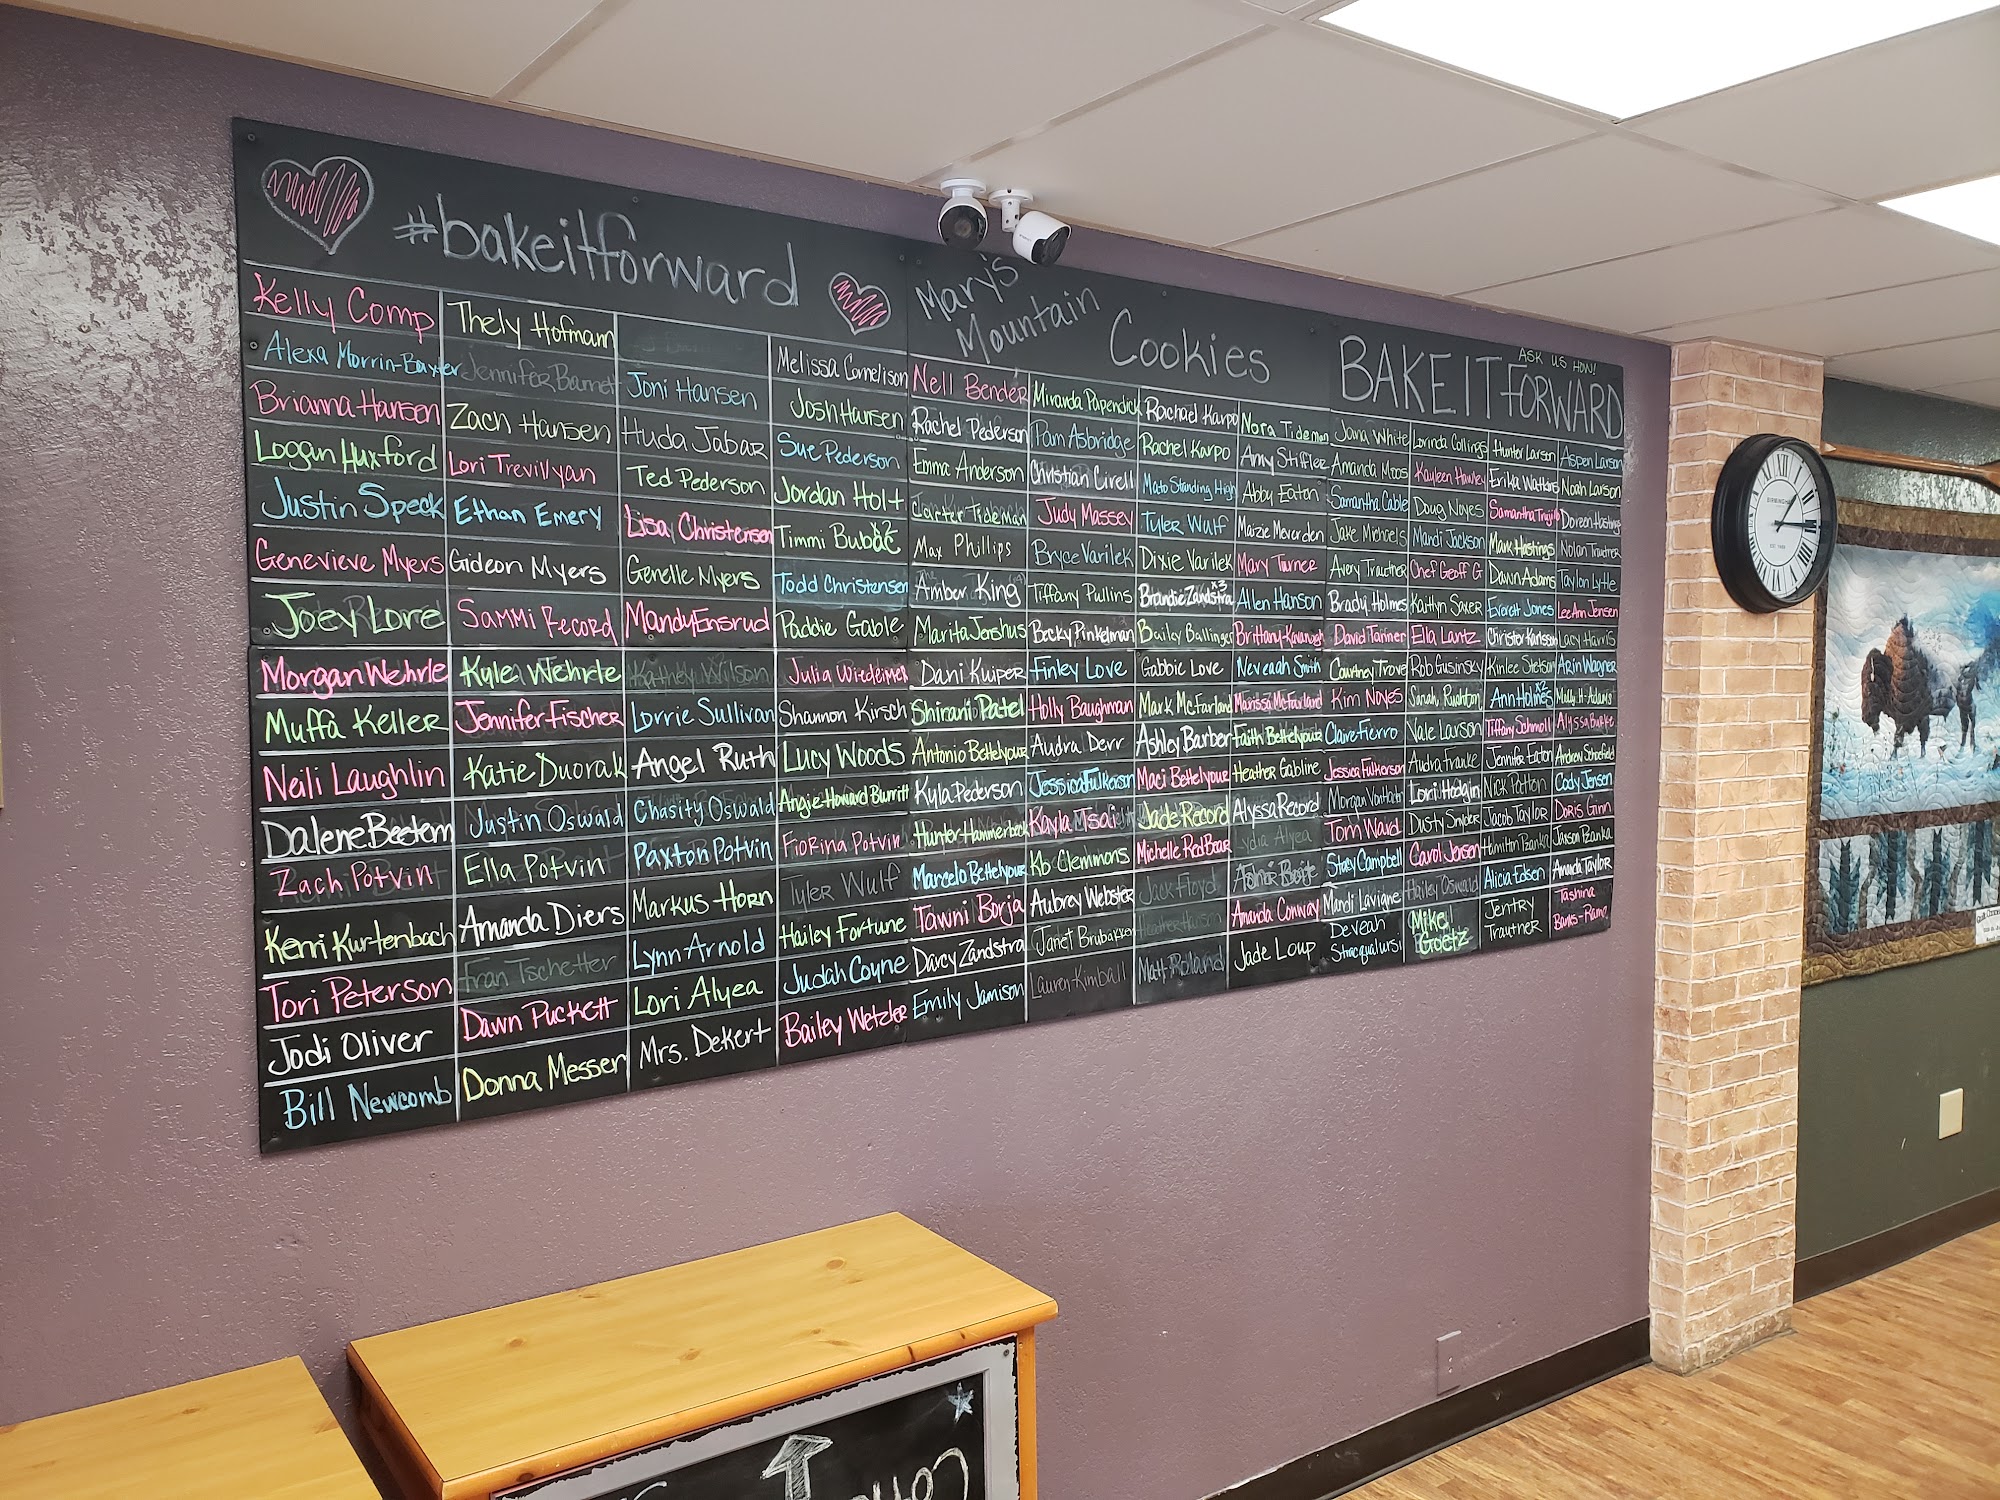 #bakeitforward
Mary's
Mountain
Cookies
ASK US HOW!
BAKE IT FORWARD
Kelly Comp
Alexa Morrin-Baxter
Brianna Hansen
Logan Huxford
Justin Speck
Genevieve Myers
Joey Lore
Morgan Wehrle
Muffa Keller
Neili Laughlin
Dalene Beetem
Zach Potvin
Kerri Kurtenbach
Tori Peterson
Jodi Oliver
Bill Newcomb
Thely Hofmann
Jennifer Barnett
Zach Hansen
Lori Trevillyan
Ethan Emery
Gideon Myers
Sammi Record
Kyle Wehrle
Jennifer Fischer
Katie Dvorak
Justin Oswald
Ella Potvin
Amanda Diers
Fran Tschetter
Dawn Puckett
Donna Messer
Joni Hansen
Huda Jabar
Ted Pederson
Lisa Christensen
Genelle Myers
Mandy Ensrud
Kathey Wilson
Lorrie Sullivan
Angel Ruth
Chasity Oswald
Paxton Potvin
Markus Horn
Lynn Arnold
Lori Alyea
Mrs. Dekert
Melissa Cornelison
Josh Hansen
Sue Pederson
Jordan Holt
Timmi Bubac x2
Todd Christensen
Paddie Gable
Julia Wiedeimer
Shannon Kirsch
Lucy Woods
Angie Howard Burritt
Fiorina Potvin
Tyler Wulf
Hailey Fortune
Judah Coyne
Bailey Wetzler
Nell Bender
Rachel Pederson
Emma Anderson
Carter Tideman
Max Phillips
Amber King
Marita Jorshus
Dani Kuiper
Shirani Patel
Antonio Bettelyour
Kyla Pederson
Hunter Hammerbeck
Marcelo Bettelyour
Tawni Borja
Darcy Zandstra
Emily Jamison
Miranda Papendick
Pam Asbridge
Christian Cirell
Judy Massey
Bryce Varilek
Tiffany Pullins
Becky Pinkelman
Finley Love
Holly Baughman
Audra Derr
Jessica Fulkerson
Kayla Tsai
Kb Clemmons
Aubrey Webster
Janet Brubakken
Lauren Kimball
Rachael Karpo
Rachel Karpo
Mato Standing High
Tyler Wulf
Dixie Varilek
Brandie Zandstra x3
Bailey Ballinger
Gabbie Love
Mark McFarland
Ashley Barber
Maci Bettelyour
Jade Record
Michelle RedBear
Jack Floyd
Heather Hansen
Matt Rolland
Nora Tideman
Amy Stifler
Abby Eaton
Maizie Meverden
Mary Turner
Allen Hanson
Brittany Kavanagh
Neveaah Smith
Marissa McFarland
Faith Bettelyour
Heather Gabline
Alyssa Record
Lydia Alyea
Amanda Conway
Jade Loup
Jana White
Amanda Moos
Samantha Cable
Jake Michaels
Avery Trautner
Brady Holmes
David Tanner
Courtney Trove
Kim Noyes
Claire Fierro
Jessica Fulkerson
Tom Ward
Stacy Campbell
Mandi Lavigne
DeVeah
Stracqualursi
Lorinda Collings
Kayleen Hawley
Doug Noyes
Mandi Jackson
Chef Geoff G
Kaitlyn Saxer
Ella Lantz
Rob Gusinsky
Sarah Rushton
Vale Larson
Audra Franke
Lori Hodgin
Dusty Snyder
Carol Jensen
Hailey Oswald
Mike
Goetz
Hunter Larson
Erika Watkins
Samantha Trujillo
Mark Hastings
Dawn Adams
Everett Jones
Christer Karlsson
Kinlee Stetson
Ann Holmes x2
Tiffany Schmoll
Jennifer Eaton
Nick Patton
Jacob Taylor
Hamilton Pzanka
Alicia Edsen
Jentry
Trautner
Aspen Larson
Noah Larson
Doreen Hastings
Nolan Trautner
Taylon Lytle
LeeAnn Jensen
Lacy Harris
Arin Wagner
Molly H-Adams
Alyssa Burke
Andrew Scholfield
Cody Jensen
Doris Ginn
Jaxson Pzanka
Amanda Taylor
Tashina
Banks-Rama